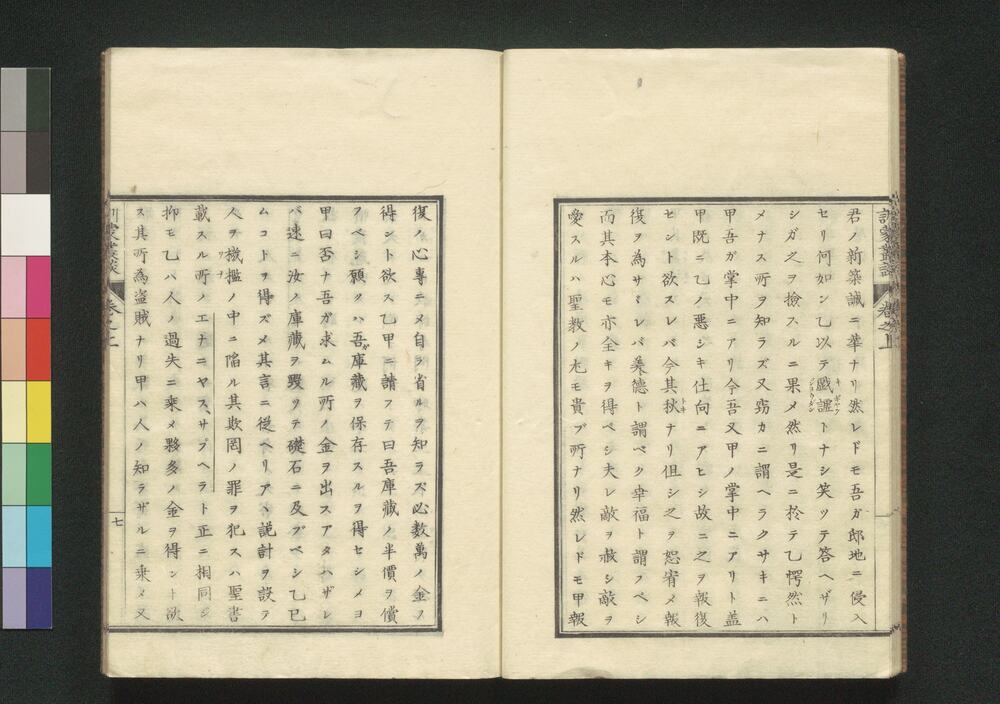 君ノ新築誠ニ華ナリ然レドモ吾ガ邸地ニ侵入
セリ何如ン乙以テ戯謔トナシ笑ツテ答ヘザリ
シガ之ヲ撿スルニ果メ然リ是ニ於テ乙愕然ト
メナス所ヲ知ラズ又窃カニ謂ヘラクサキニハ
甲吾ガ掌中ニアリ今吾又甲ノ掌中ニアリト盖
甲既ニ乙ノ悪シキ仕向ニアヒシ故ニ之ヲ報復
セント欲スレバ今其秋ナリ但シ之ヲ恕宥メ報
復ヲ為サヾレバ美德ト謂ベク幸福ト謂フベシ
而其本心モ亦全キヲ得ベシ夫レ敵ヲ赦シ敵ヲ
愛スルハ聖教ノ尤モ貴ブ所ナリ然レドモ甲報
復ノ心専ニメ自ラ省ルヲ知ラズ必数萬ノ金ヲ
得ント欲ス乙甲ニ請フテ曰吾庫藏ノ半價ヲ償
フベシ願クハ吾庫藏ヲ保存スルヲ得セシメヨ
甲曰否ナ吾ガ求ムル所ノ金ヲ出スアタハザレ
バ速ニ汝ノ庫藏ヲ毀ツテ礎石ニ及ブベシ乙已
ムコトヲ得ズメ其言ニ從ヘリアヽ詭計ヲ設テ
人ヲ機檻ノ中ニ陥ル其欺罔ノ罪ヲ犯スハ聖書
載スル所ノエナニヤス、サプヘラト正ニ相同ジ
抑モ乙ハ人ノ過失ニ乘メ夥多ノ金ヲ得ント欲
ス其所為盗賊ナリ甲ハ人ノ知ラザルニ乘メ又
卷之二
七